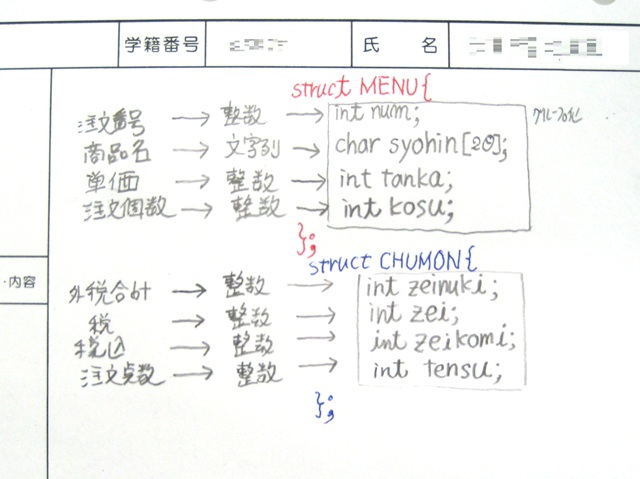 学籍番号 氏 名
struct MENU{
注文番号 → 整数 → int num; グループ化
商品名 → 文字列 → char syohin[20];
単価 → 整数 → int tanka;
注文個数 → 整数 → int kosu;
};
struct CHUMON{
・内容
外税合計 → 整数 → int zeinuki;
税 → 整数 → int zei;
税込 → 整数 → int zeikomi;
注文点数 → 整数 → int tensu;
};